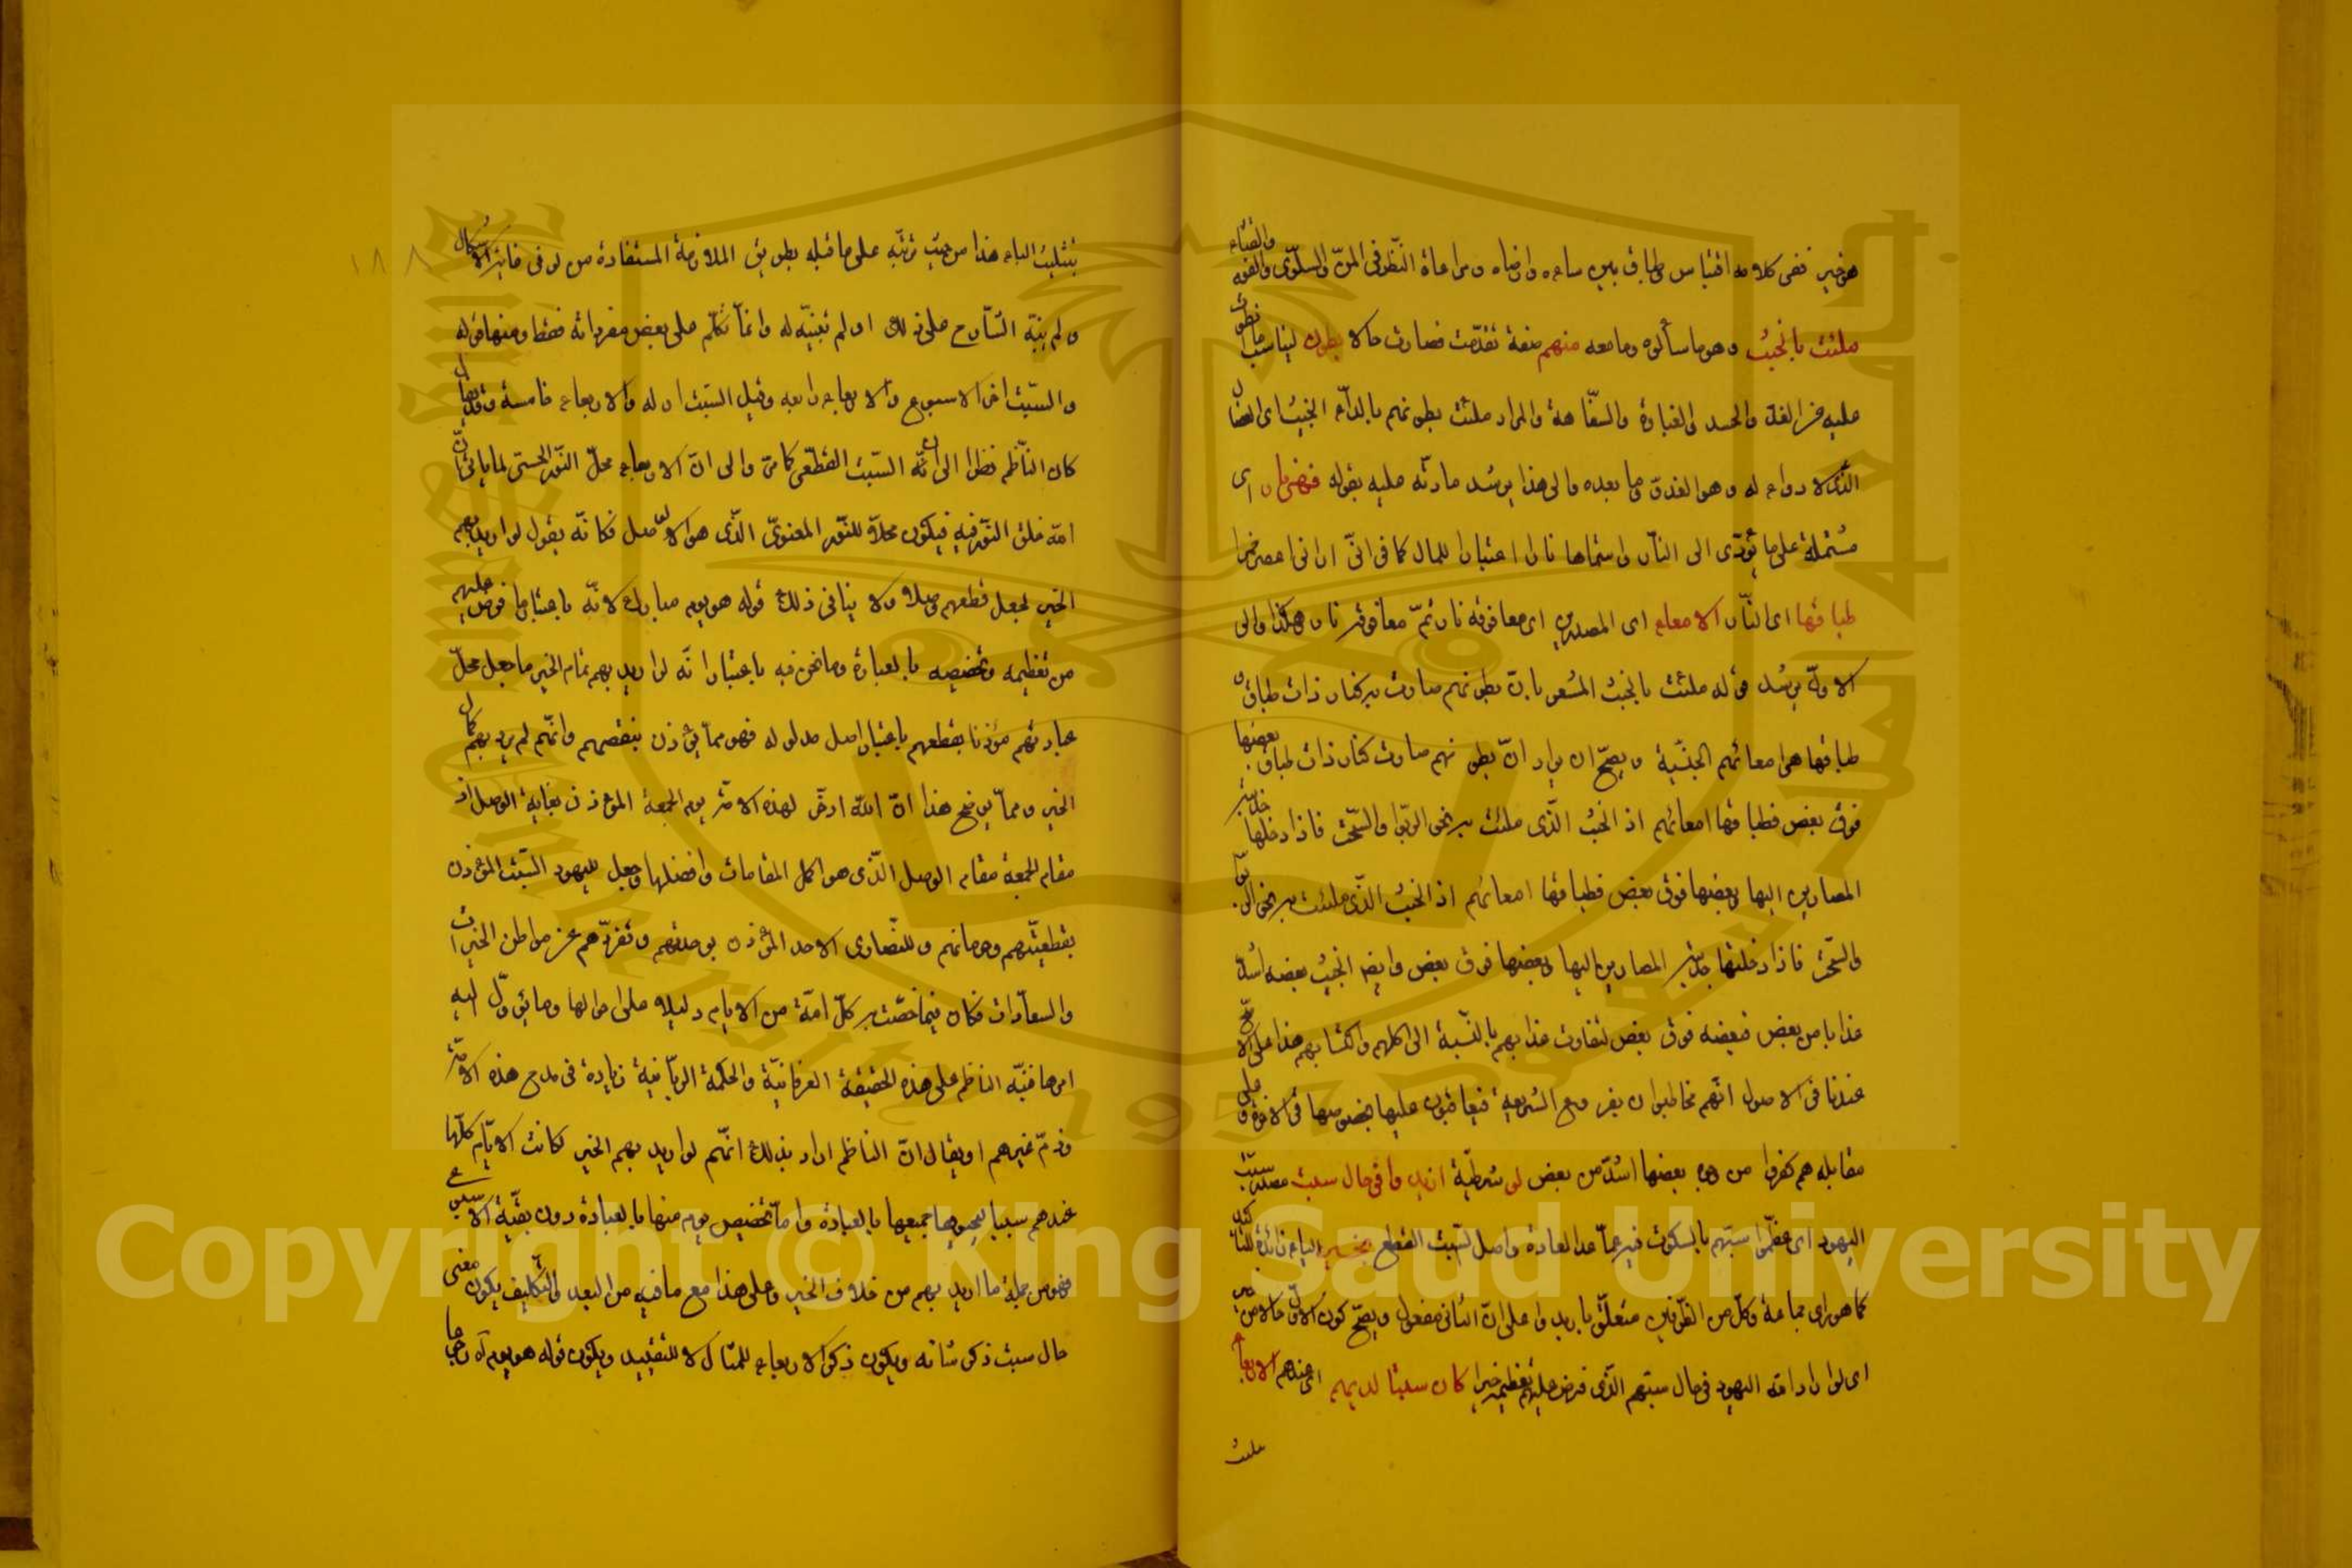 هو خير ففى كلامه اقتباس وطباق بين ساءه وارضاه ومراعاة النظير فى المن والسلوى والفوم والقثاء
ملئت بالخبيث وهو ما سألوه وما معه منهم صفة تقدمت فصارت حالا بطون ليناسب ما نطوت
عليه من الغل والحسد والغباوة والسفاهة والمراد ملئت بطونهم بالداء الخبيث اى العضال
الذى لا دواء له وهو الغدة وما بعده والى هذا يرشد ما رتبه عليه بقوله فهى نار اى
مشتملة على ما يؤدى الى النار واسماها نارا اعتبارا للمال كما فى انى ارانى اعصر خمرا
طباقها اى النار الامعاء اى المصارين اى معا فوقه نار ثم معا فوقه نار هكذا والى
الاول يرشد قوله ملئت بالخبيث المشعر بان بطونهم صارت كنار ذات طباق
طباقها هى امعائهم الخبيثة ويصح ان يراد ان بطونهم صارت كنار ذات طباق بعضها
فوق بعض فطباقها امعائهم اذ الخبيث الذى ملئت به نحو الربوا والسحت فاذا دخلها
المصارين اليها وبعضها فوق بعض فطباقها امعائهم اذ الخبيث الذى ملئت به نحو الربوا
والسحت فاذا دخلتها المصارين اليها وبعضها فوق بعض وايضا الخبيث بعضه اشد
عذابا من بعض فبعضه فوق بعض لتفاوت عذابهم بالنسبة الى اكلهم واكتسابهم هذا على الاصح
عندنا فى الاصول انهم مخاطبون بفروع الشريعة فيعاقبون عليها بخصوصها فى الاخرة وعلى
مقابله هم كفروا من بعضها اشد من بعض لو شرطية اريدوا فى حال سبت مصدر سبت
اليهود اى عظموا سبتهم بالسكوت فيه عما عدا العادة واصل السبت القطع بخير الباء زائدة للتاكيد
كما هو راى جماعة وكل من الظرفين متعلق باريدوا على ان الثانى مفعول ويصح كون الاول حالا من
اى لو اراد الله اليهود فى حال سبتهم الذى فرض عليهم تعظيمه خيرا كان سبتا لديهم اى عندهم الاربعاء
بتثليث الباء هذا من حيث ترتبه على ما قبله بطريق الملازمة المستفادة من لو فى غاية الاشكال
ولم ينبه الشارح على ذلك او لم يتنبه له وانما تكلم على بعض مفرداته فقط ومنها قوله
والسبت اخر الاسبوع والاربعاء رابعه وقيل السبت اوله والاربعاء خامسه وقد يقال
كان الناظم نظر الى ان السبت القطع كما مر والى ان الاربعاء محل النور الحسى لما ياتى ان
الله خلق النور فيه فيكون محلا للنور المعنوى الذى هو الوصل فكانه يقول لو اريد بهم
الخير لجعل قطعهم وصلا ولا ينافى ذلك قوله هو يوم مبارك لانه باعتبار ما فرض عليهم
من تعظيمه وتخصيصه بالعبادة وما نحن فيه باعتبار انه لو اريد بهم تمام الخير ما جعل محل
عبادتهم مؤذنا بقطعهم باعتبار اصل مدلوله فهو مما يؤذن بنقصهم وانهم لم يرد بهم كمال
الخير ومما يوضح هذا ان الله ادخر لهذه الامة يوم الجمعة المؤذن بغاية الوصل اذ
مقام الجمعة مقام الوصل الذى هو اكمل المقامات وافضلها وجعل لليهود السبت المؤذن
بقطيعتهم وحرمانهم وللنصارى الاحد المؤذن بوحدتهم وتفردهم عن مواطن الخيرات
والسعادات فكان فيما خصت به كل امة من الايام دليلا على احوالها وما يؤول اليه
امرها فنبه الناظم على هذه الحقيقة العرفانية والحكمة الربانية زيادة فى مدح هذه الامة
وذم غيرهم او يقال ان الناظم اراد بذلك انهم لو اريد بهم الخير لكانت الايام كلها
عندهم سبتا جميعها بالعبادة واما تخصيص يوم منها بالعبادة دون بقية الاسبوع
فهو من جملة ما اريد بهم من خلاف الخير وعلى هذا مع ما فيه من البعد والتكليف يكون معنى
حال سبت ذكر شانه ويكون ذكر الاربعاء للمثال لا للتقييد ويكون قوله هو يوم اه
ملئت
١٨٨
Copyright © King Saud University
King Saud University
جامعة الملك سعود
1957